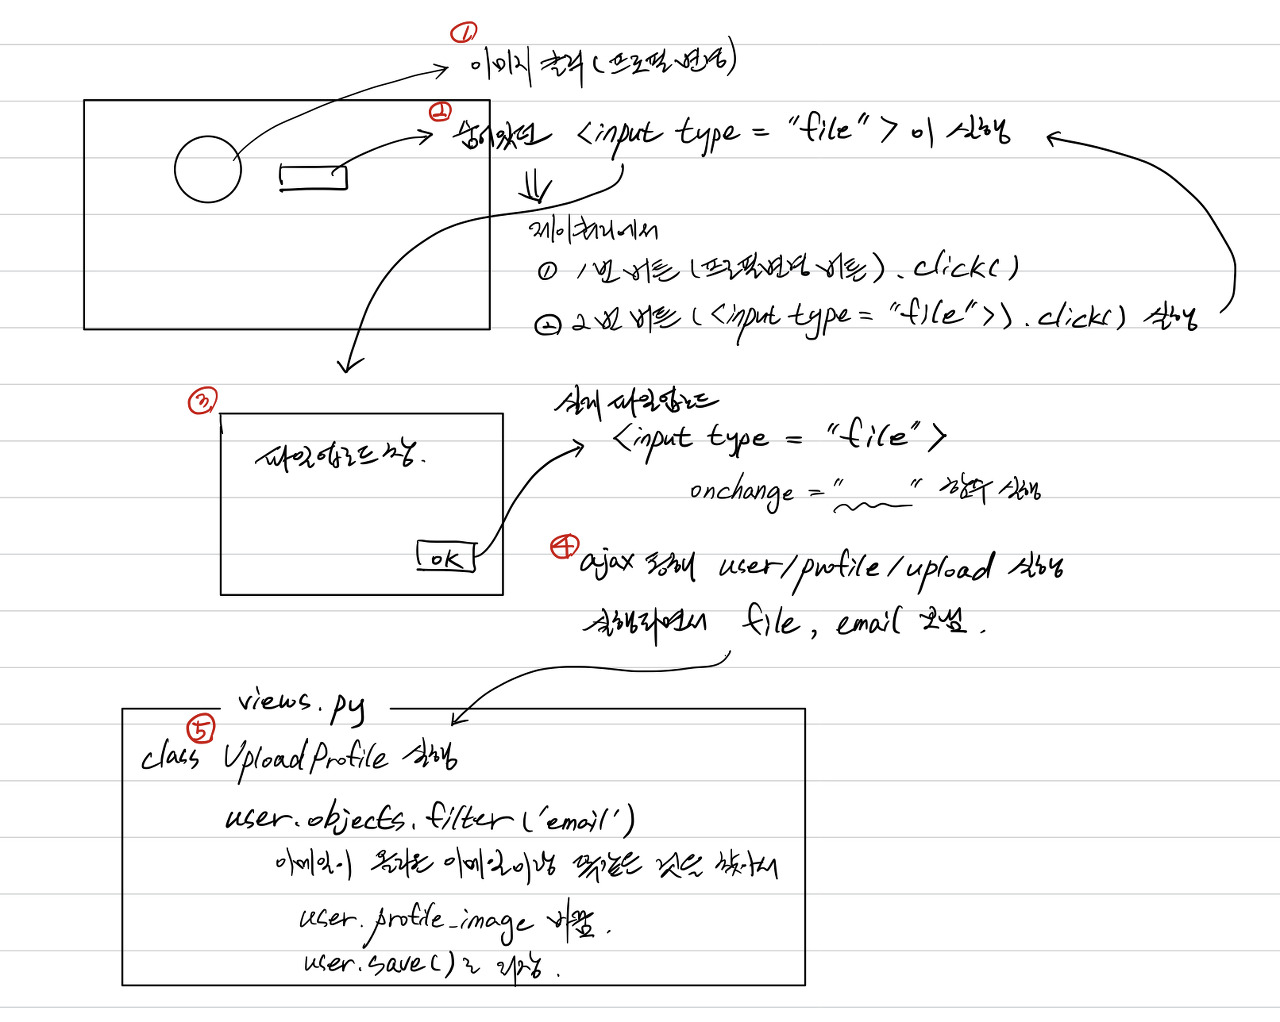 ①
이미지 클릭 (프로필 변경)
②
숨어있던 <input type = "file"> 이 실행
제이쿼리에서
① 1번 버튼 (프로필변경 버튼). click()
② 2번 버튼 (<input type = "file">). click() 실행
③
파일업로드 창.
OK
실제 파일업로드
<input type = "file">
onchange = " " 함수 실행
④ ajax 통해 user/profile/upload 실행
실행하면서 file, email 보냄.
views.py
⑤
class UploadProfile 실행
user.objects.filter('email')
이메일이 올라온 이메일이랑 똑같은 것을 찾아서
user.profile_image 바꿈.
user.save()로 저장.